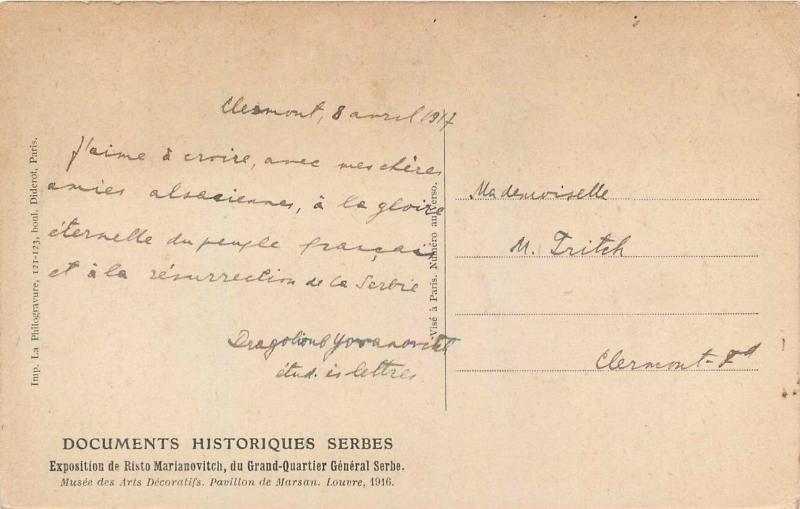 Clermont, 8 avril 1917
J'aime à croire, avec mes chères
amies alsaciennes, à la gloire
éternelle du peuple français
et à la résurrection de la Serbie
Dragolioub Yovanovitch
étud. ès lettres
Mademoiselle
M. Tritch
Clermont-Fd
Imp. La Philogravure, 121-123, boul. Diderot, Paris.
Visé à Paris. Numéro au verso.
DOCUMENTS HISTORIQUES SERBES
Exposition de Risto Marianovitch, du Grand-Quartier Général Serbe.
Musée des Arts Décoratifs. Pavillon de Marsan. Louvre, 1916.